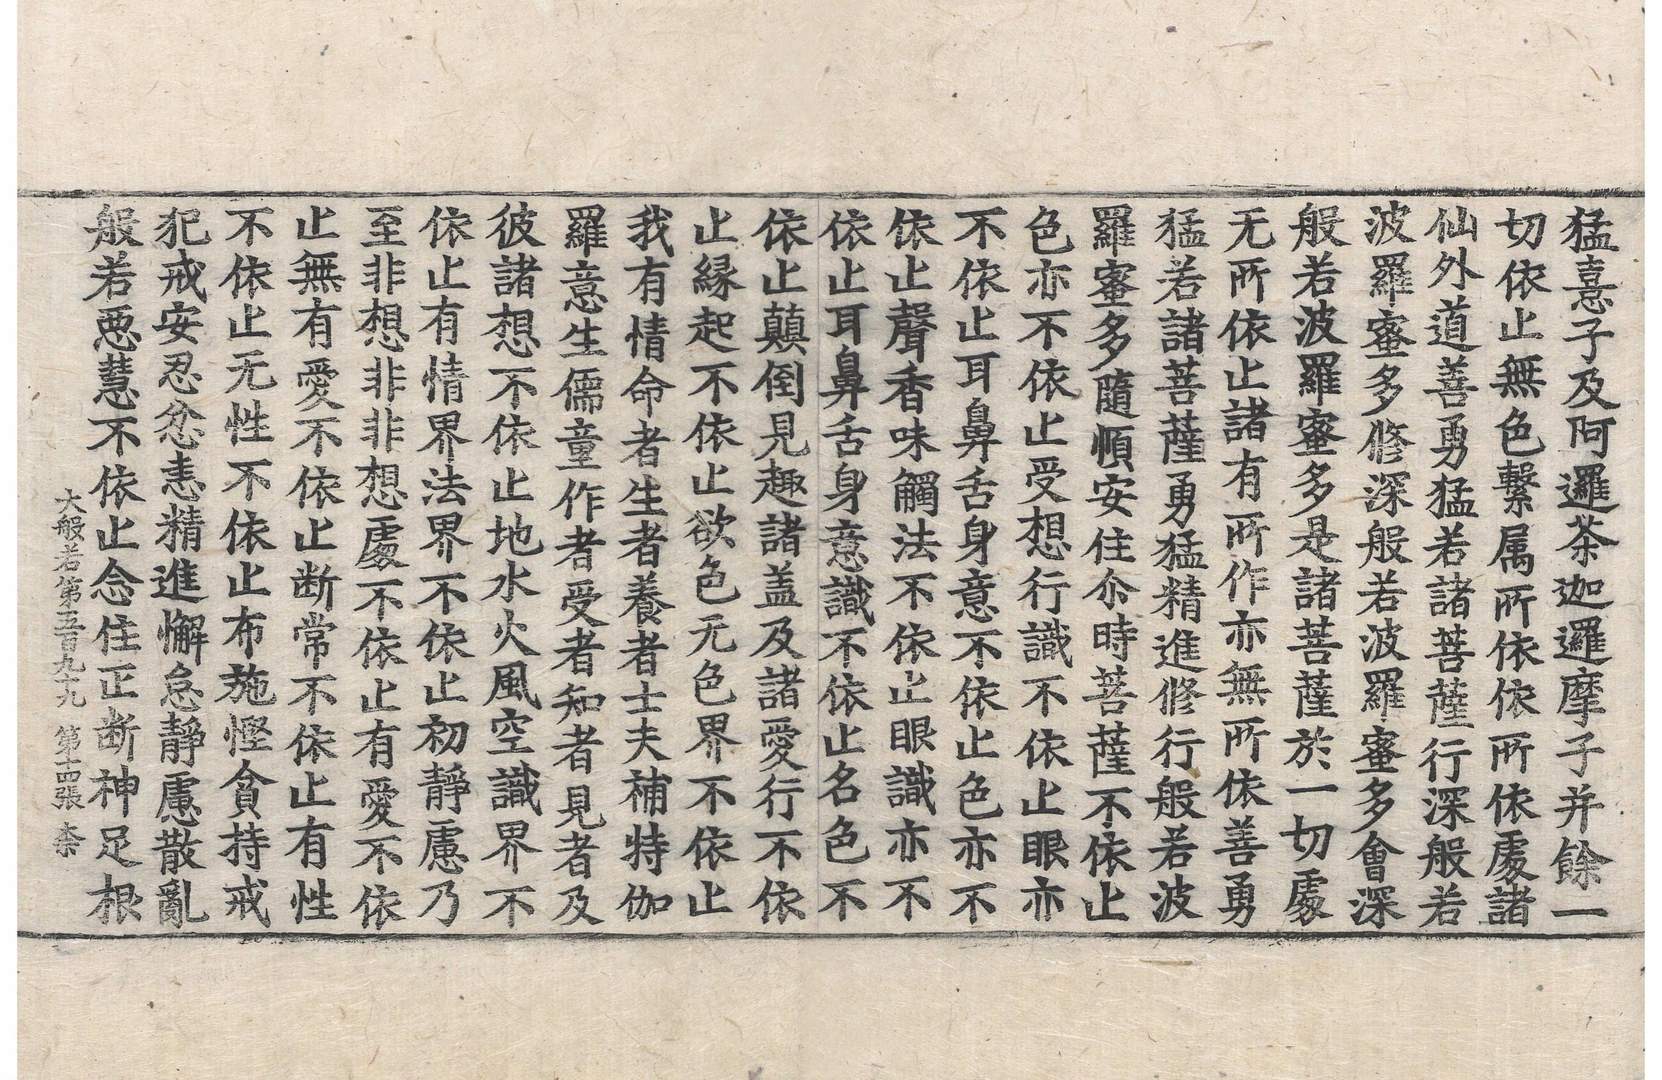 猛憙子及阿邏荼迦邏摩子并餘一
切依止無色繫属所依依所依處諸
仙外道善勇猛若諸菩薩行深般若
波羅蜜多修深般若波羅蜜多會深
般若波羅蜜多是諸菩薩於一切處
无所依止諸有所作亦無所依善勇
猛若諸菩薩勇猛精進修行般若波
羅蜜多隨順安住尒時菩薩不依止
色亦不依止受想行識不依止眼亦
不依止耳鼻舌身意不依止色亦不
依止聲香味觸法不依止眼識亦不
依止耳鼻舌身意識不依止名色不
依止顛倒見趣諸盖及諸愛行不依
止縁起不依止欲色无色界不依止
我有情命者生者養者士夫補特伽
羅意生儒童作者受者知者見者及
彼諸想不依止地水火風空識界不
依止有情界法界不依止初靜慮乃
至非想非非想處不依止有愛不依
止無有愛不依止断常不依止有性
不依止无性不依止布施慳貪持戒
犯戒安忍忿恚精進懈怠靜慮散亂
般若惡慧不依止念住正断神足根
大般若第五百九十九 第十四張 柰